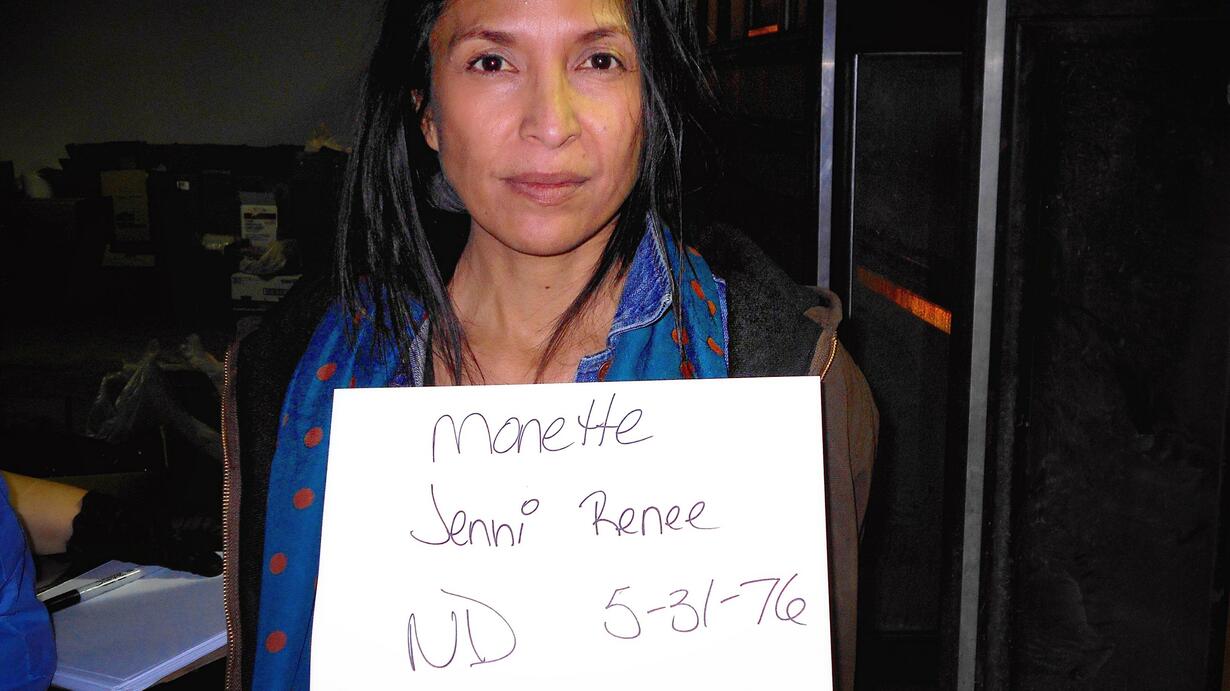 Monette
Jenni Renee
ND 5-31-76